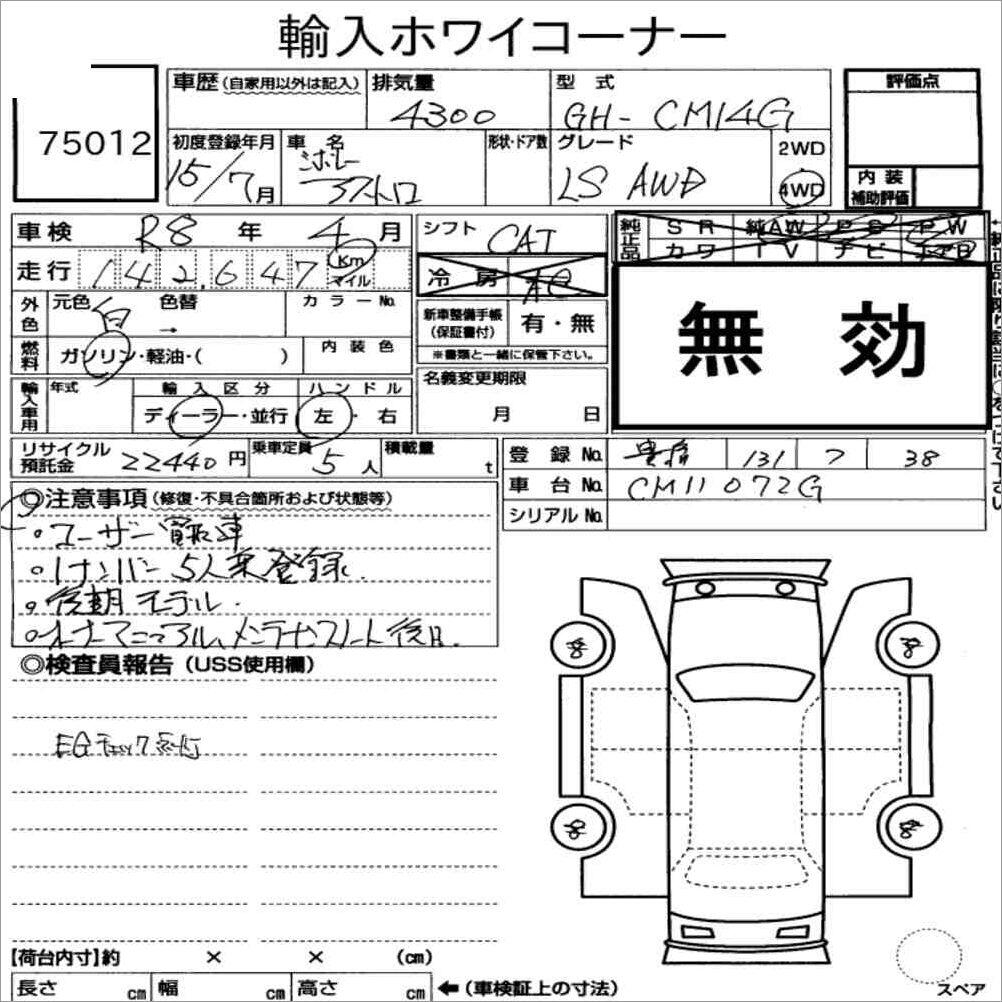 輸入ホワイコーナー
75012
車歴(自家用以外は記入) 排気量 4300 型式 GH-CM14G 評価点
初度登録年月 15/7月 車名 シボレー アストロ 形状・ドア数 グレード LS AWD 2WD 4WD
内装補助評価
車検 R8年 4月 シフト CAT 純正品 SR 純AW PS PW
カワ TV ナビ
走行 142,647 Km マイル 冷房 AC
外色 元色 白 色替 → カラーNo.
新車整備手帳(保証書付) 有・無
※書類と一緒に保管下さい。
無効
燃料 ガソリン・軽油・( ) 内装色
輸入車用 年式 輸入区分 ディーラー・並行 ハンドル 左・右
名義変更期限 月 日
リサイクル預託金 22440円 乗車定員 5人 積載量 t
登録No. 131 ワ 38
車台No. CM11072G
シリアルNo.
◎注意事項(修復・不具合箇所および状態等)
・ユーザー買取車
・1ナンバー 5人乗登録.
・後期モデル.
・オーナーマニュアル、メンテナンスノート後日.
◎検査員報告(USS使用欄)
EGチェック点灯
【荷台内寸】約 × × (cm)
長さ cm 幅 cm 高さ cm ←(車検証上の寸法)
スペア